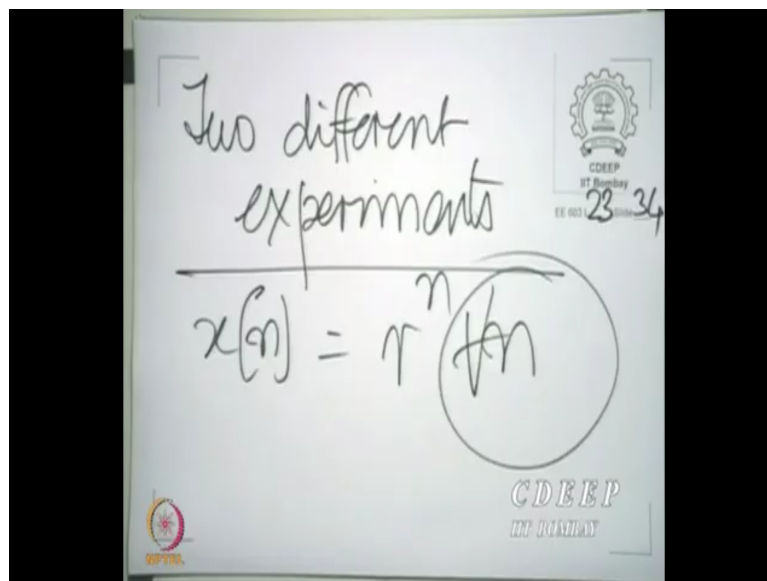 Two different
experiments
x[n] = r^n ∀n
CDEEP
IIT Bombay
EE 603 L 23 Slide 34
CDEEP
IIT BOMBAY
NPTEL